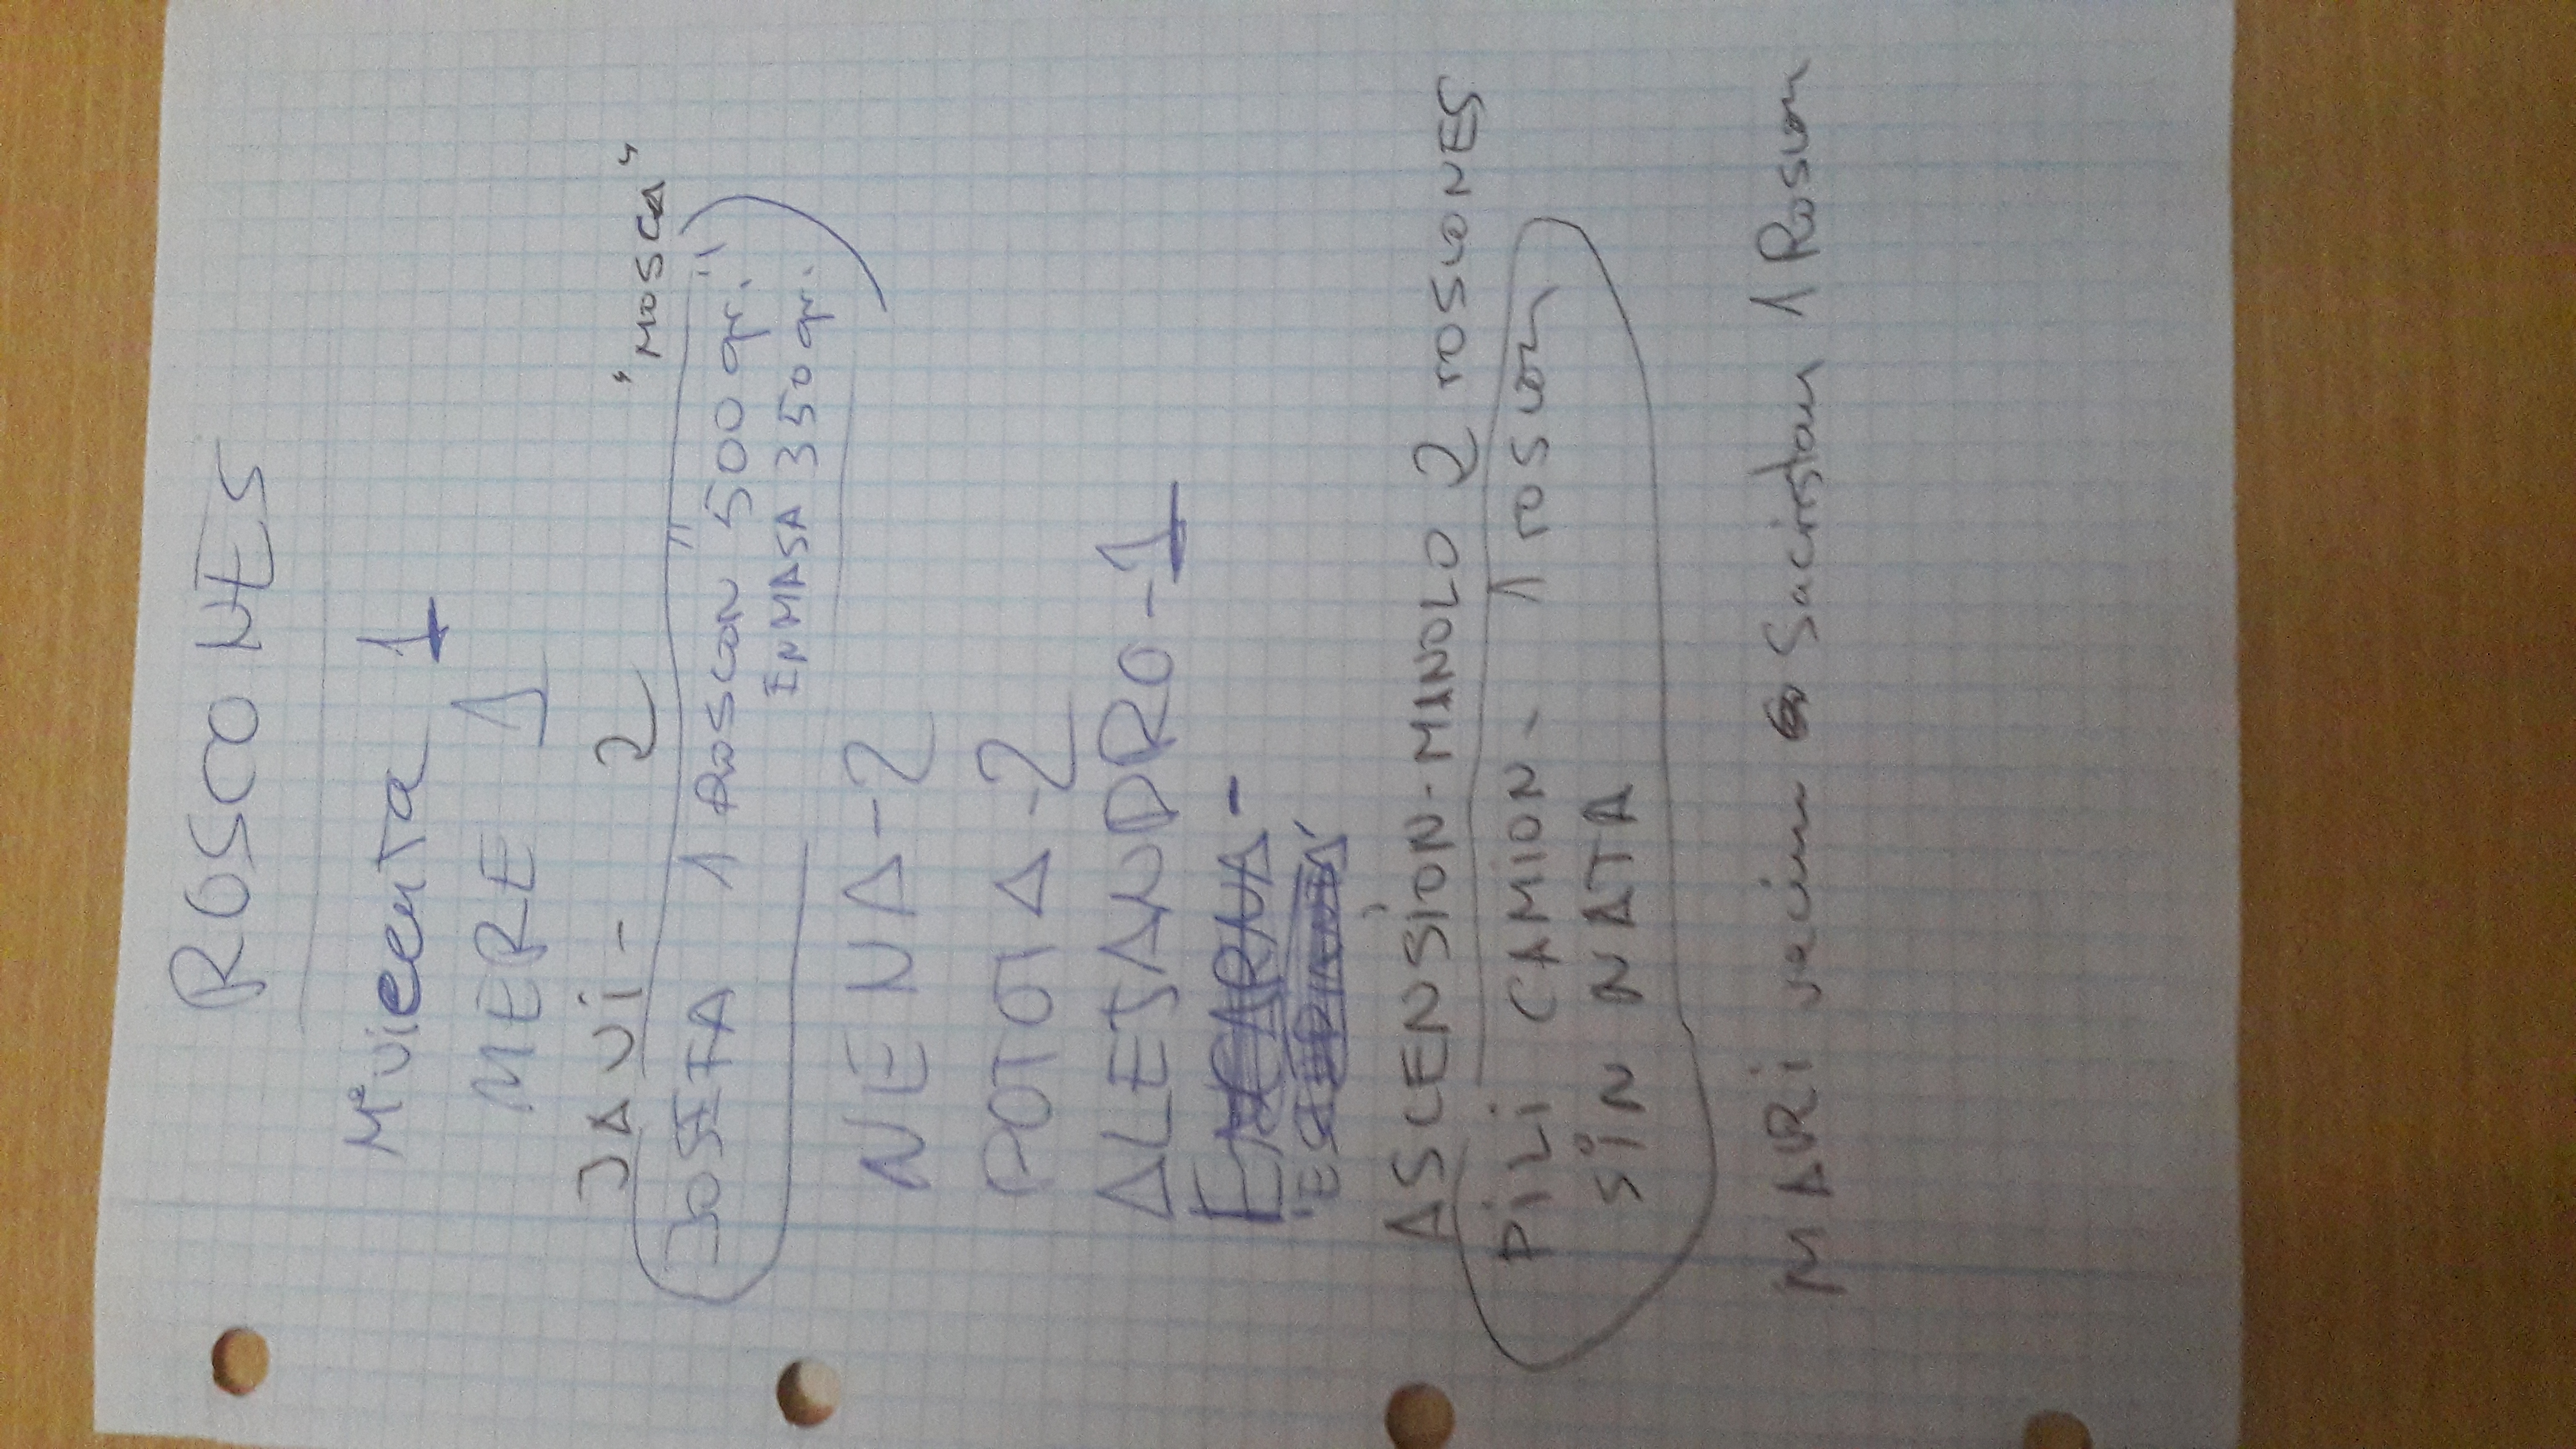 ROSCONES
Mª Vicenta 1
MERE 1
JAVI - 2 "MOSCA"
JOSEFA 1 ROSCON 500 gr.
EN MASA 350 gr.
NENA - 2
POTOTA - 2
ALESANDRO - 1
ENCARNA -
ASCENSIÓN - MANOLO 2 rosCONES
PILI CAMION - 1 roscon
SIN NATA
MARI vecina Sacristan 1 Roscon